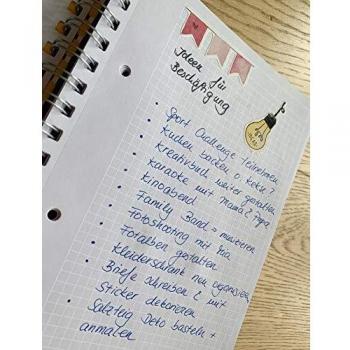 Ideen für
Beschäftigung
Sport Challenge teilnehmen
Kuchen backen o. Kekse?
Kreativbuch weiter gestalten
Karaoke mit Mama & Papa
Kinoabend
Family Band = musizieren
Fotoshooting mit Mia
Fotoalben gestalten
Kleiderschrank neu organisieren
Briefe schreiben & mit
Sticker dekorieren
Salzteig Deko basteln +
anmalen